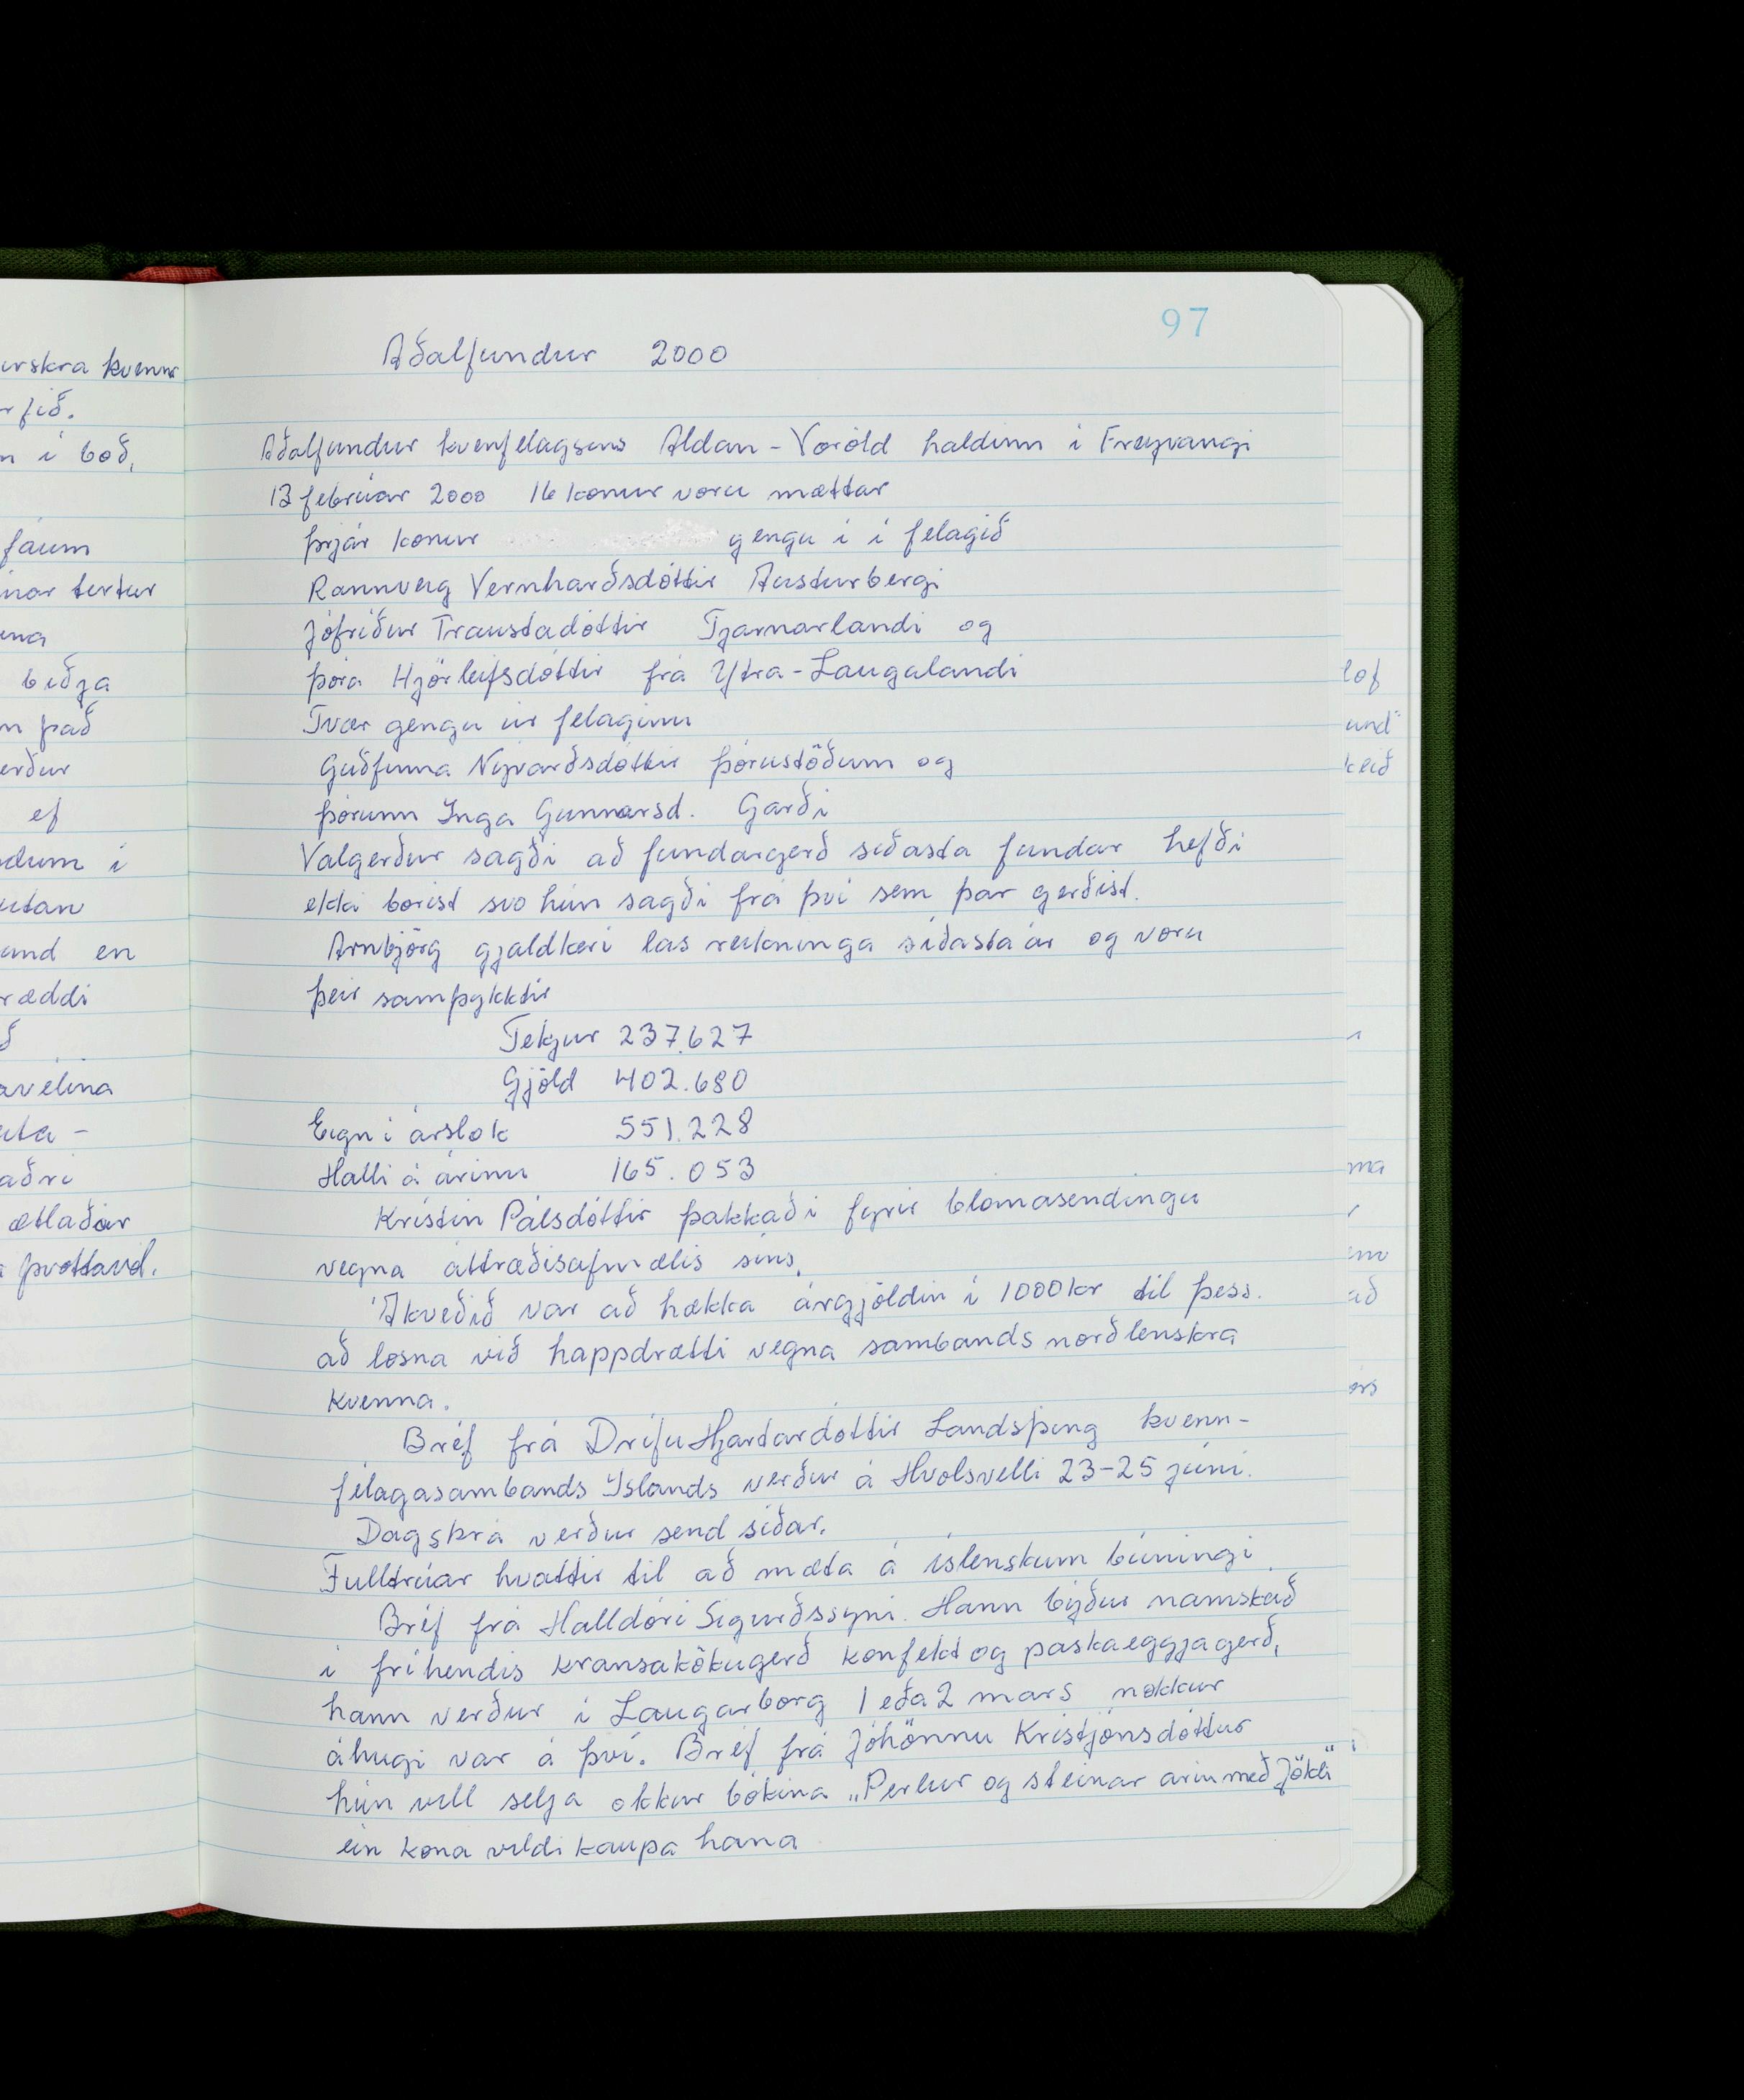 97
Aðalfundur 2000
Aðalfundur kvenfelagsins Aldan - Voröld haldinn i Freyvangi
13 februar 2000 16 konur voru mættar
þrjár konur gengu i i felagið
Rannveig Vernharðsdóttir Austurbergi
Jófríður Traustadóttir Tjarnarlandi og
þóra Hjörleifsdóttir frá Ytra-Laugalandi
Tvær gengu úr felaginu
Guðfinna Nývarðsdóttir þórustöðum og
þórunn Inga Gunnarsd. Garði
Valgerður sagði að fundargerð síðasta fundar hefði
ekki borist svo hún sagði frá því sem þar gerðist.
Arnbjörg gjaldkeri las reikninga síðasta ár og voru
þeir samþykktir
Tekjur 237.627
Gjöld 402.680
Eign i árslok 551.228
Halli á árinu 165.053
Kristín Pálsdóttir þakkaði fyrir blómasendingu
vegna áttræðisafmælis síns.
Ákveðið var að hækka árgjöldin í 1000kr til þess.
að losna við happdrætti vegna sambands norðlenskra
kvenna.
Bréf frá Drífu Hjartardóttir Landsþing kvenn-
félagasambands Íslands verður á Hvolsvelli 23-25 júní.
Dagskrá verður send síðar.
Fulltrúar hvattir til að mæta á íslenskum búningi.
Bréf frá Halldóri Sigurðssyni. Hann býður namskeið
i fríhendis kransakökugerð konfekt og paskaeggjagerð,
hann verður i Laugarborg 1 eða 2 mars nokkur
áhugi var á því. Bréf frá Jóhönnu Kristjónsdóttur
hún vill selja okkur bókina „Perlur og steinar árin með Jökli"
ein kona vildi kaupa hana